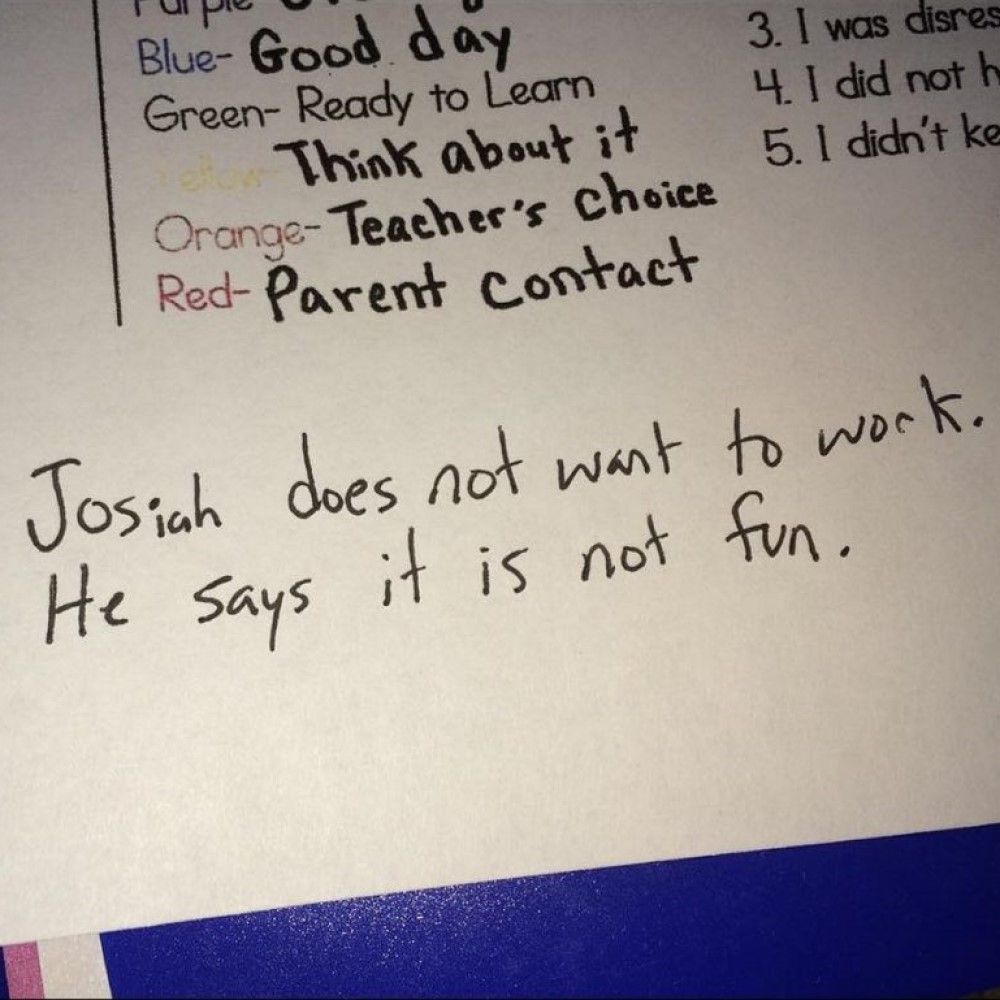 Purple
Blue- Good day
Green- Ready to Learn
Yellow- Think about it
Orange- Teacher's choice
Red- Parent contact
3. I was
4. I did not
5. I didn't
Josiah does not want to work.
He says it is not fun.